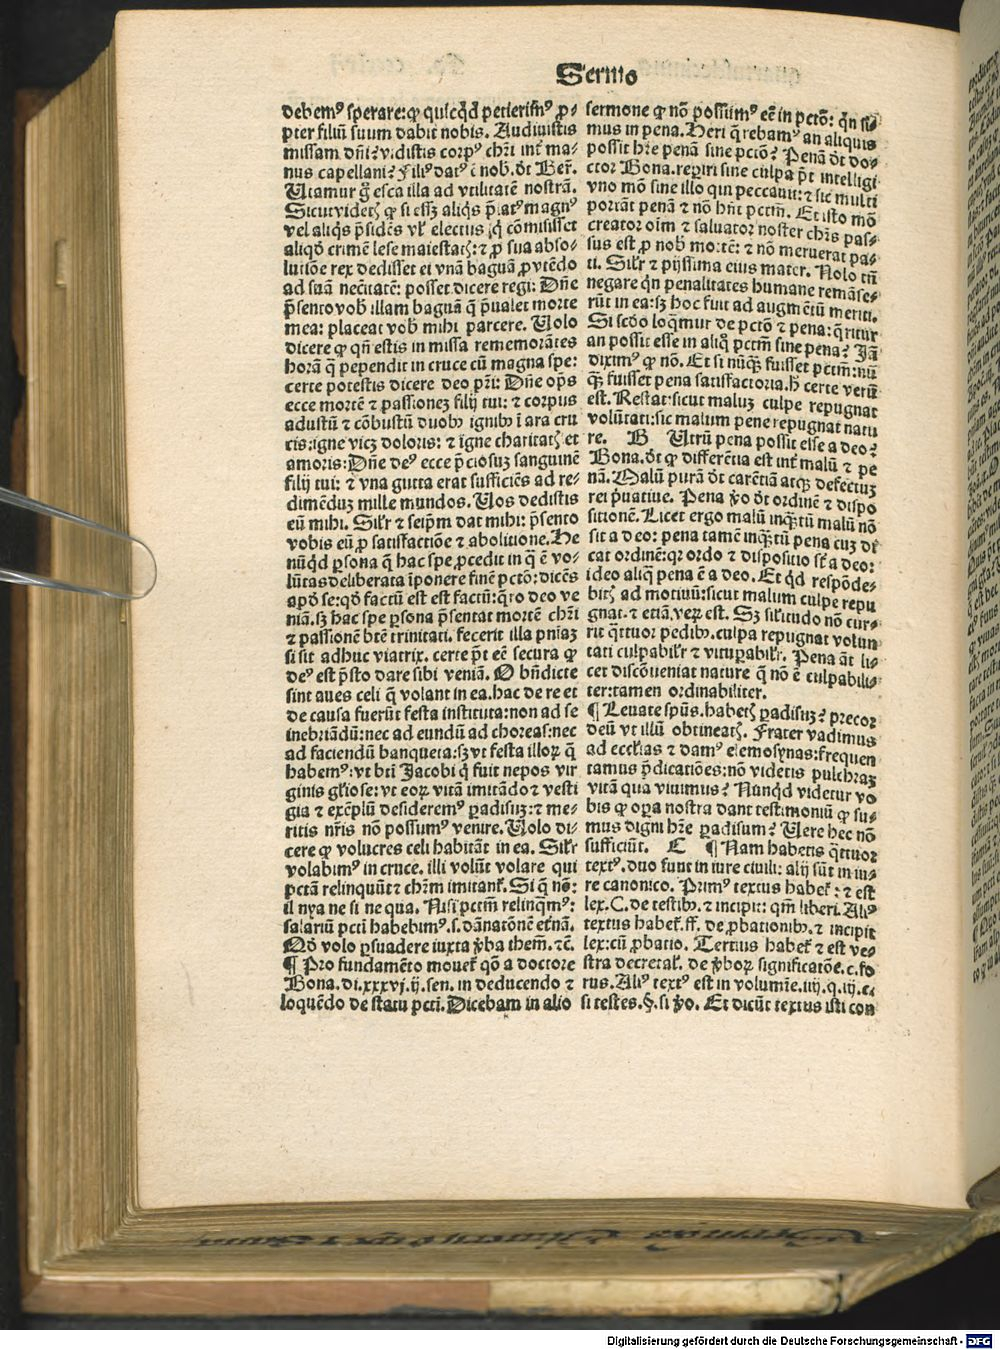 Sermo
debemꝰ sperare: ꝙ quicq̃d petierimꝰ ꝓ-
pter filiũ suum dabit nobis. Audiuistis
missam dñi? vidistis corpꝰ chr̃i int̃ ma-
nus capellani? Filiꝰ datꝰ ẽ nob̃. d̃t Ber̃.
Utamur g̃ esca illa ad vtilitatẽ nostrã.
Sicut videtꝭ ꝙ si essꝫ aliq̃s p̃latꝰ magnꝰ
vel aliq̃s p̃sidẽs vl̃ electus q̃ cõmisisset
aliqd̃ crimẽ lese maiestatꝭ: ⁊ ꝓ sua abso-
lutiõe rex dedisset ei vnã baguã ꝓ vtẽdo
ad suã necẽitatẽ: posset dicere regi: Dñe
p̃sento vob̃ illam baguã q̃ p̃ualet morte
mea: placeat vob̃ mihi parcere. Uolo
dicere ꝙ qñ estis in missa rememorãtes
horã q̃ pependit in cruce cũ magna spe:
certe potestis dicere deo pr̃i: Dñe op̃s
ecce mortẽ ⁊ passionez filij tui: ⁊ corpus
adustũ ⁊ cõbustũ duobꝰ ignibꝰ ĩ ara cru
cis: igne vicꝫ doloris: ⁊ igne charitatꝭ et
amoris: Dñe deꝰ ecce p̃ciosuꝫ sanguinẽ
filij tui: ⁊ vna gutta erat sufficiẽs ad re-
dimẽduꝫ mille mundos. Uos dedistis
eũ mihi. Silr̃ ⁊ seip̃m dat mihi: p̃sento
vobis eũ ꝓ satisfactiõe ⁊ abolitione. He
nũqd̃ ꝑsona q̃ hac spe ꝓcedit in q̃ ẽ vo-
lũtas deliberata ĩponere finẽ pctõ: dicẽs
apd̃ se: qd̃ factũ est est factũ: q̃ro deo ve
niã. sꝫ hac spe ꝑsona p̃sentat mortẽ chr̃i
⁊ passionẽ btẽ trinitati. fecerit illa pniaꝫ
si sit adhuc viatrix. certe p̃t eẽ secura ꝙ
deꝰ est p̃sto dare sibi veniã. O bñdicte
sint aues celi q̃ volant in ea. hac de re et
de causa fuerũt festa instituta: non ad se
inebriãdũ: nec ad eundũ ad choreas: nec
ad faciendũ banqueta: sꝫ vt festa illoꝝ q̃
habemꝰ: vt bti Jacobi q̃ fuit nepos vir
ginis gl̃iose: vt eoꝝ vitã imitãdo ⁊ vesti
gia ⁊ exẽplũ desideremꝰ ꝑadisuꝫ: ⁊ me-
ritis nr̃is nõ possumꝰ venire. Uolo di-
cere ꝙ volucres celi habitãt in ea. Silr̃
volabimꝰ in cruce. illi volũt volare qui
pctã relinquũt ⁊ chr̃m imitant̃. Si q̃ nõ:
il nya ne si ne qua. Nisi pctm̃ relinq̃mꝰ:
salariũ pcti habebimꝰ. s. dãnatõnẽ et̃nã.
Qd̃ volo ꝑsuadere iuxta v̾ba them̃. ⁊c̃.
¶ Pro fundamẽto mouet̃ qõ a doctore
Bona. di. xxxvj. ij. sen. in deducendo ⁊
loquẽdo de statu pcti. Dicebam in alio
sermone ꝙ nõ possumꝰ eẽ in pctõ: qñ si-
mus in pena. Heri q̃rebamꝰ an aliquis
possit hr̃e penã sine pctõ? Penã d̃t do-
ctor Bona. reꝑiri sine culpa p̃t intelligi
vno mõ sine illo qui peccauit: ⁊ sic multi
portãt penã ⁊ nõ hñt pctm̃. Et isto mõ
creator oĩm ⁊ saluator noster chr̃s pas-
sus est ꝓ nob̃ mortẽ: ⁊ nõ meruerat pa-
ti. Silr̃ ⁊ pijssima eius mater. Nolo tñ
negare qñ penalitates humane remãse-
rũt in ea: sꝫ hoc fuit ad augmẽtũ meriti.
Si scdõ loq̃mur de pctõ ⁊ pena: q̃ritur
an possit esse in aliq̃ pctm̃ sine pena? Jã
diximꝰ ꝙ nõ. Et si nũq̃ꝫ fuisset pctm̃: nũ
q̃ꝫ fuisset pena satisfactoria. h̃ certe verũ
est. Restat: sicut maluꝫ culpe repugnat
volũtati: sic malum pene repugnat natu
re. B Utrũ pena possit esse a deo?
Bona. d̃t ꝙ differẽtia est int̃ malũ ⁊ pe
nã. Malũ purã d̃t carẽtiã atqꝫ defectuꝫ
rei p̃uatiue. Pena v̾o d̃t ordinẽ ⁊ dispo
sitionẽ. Licet ergo malũ inq̃ꝫtũ malũ nõ
sit a deo: pena tamẽ inq̃ꝫtũ pena cuꝫ di
cat ordinẽ: qꝛ ordo ⁊ dispositio st̃ a deo:
ideo aliq̃ pena ẽ a deo. Et qd̃ respõde-
bitꝭ ad motiuũ: sicut malum culpe repu
gnat. ⁊ etiã veꝝ est. Sꝫ sil̃itudo nõ cur-
rit q̃ttuor pedibꝰ. culpa repugnat volun
tati culpabilr̃ ⁊ vituꝑabilr̃. Pena aũt li-
cet discõueniat nature q̃ nõ ẽ culpabili-
ter: tamen ordinabiliter.
¶ Leuate spũs. habetꝭ ꝑadisuꝫ? precor
deũ vt illũ obtineatꝭ. Frater vadimus
ad ecclesias ⁊ damꝰ elemosynas: frequen
tamus p̃dicatiões: nõ videtis pulchraꝫ
vitã qua viuimus? Nunqd̃ videtur vo
bis ꝙ oꝑa nostra dant testimoniũ ꝙ su-
mus digni hr̃e ꝑadisum? Uere hec nõ
sufficiũt. C ¶ Nam habetis q̃ttuor
textꝰ. duo sunt in iure ciuili: alij sũt in iu-
re canonico. Primꝰ textus habet̃: ⁊ est
lex. C. de testibꝰ. ⁊ incipit: qm̃ liberi. Aliꝰ
textus habet̃. ff. de ꝓbationibꝰ. ⁊ incipit
lex: cũ ꝓbatio. Tertius habet̃ ⁊ est ve-
stra decretal̃. de v̾boꝝ significatõe. c. fo
rus. Aliꝰ textꝰ est in volumine. iiij. q. iij. c.
si testes. §. si v̾o. Et dicũt textus isti con
Digitalisierung gefördert durch die Deutsche Forschungsgemeinschaft - DFG